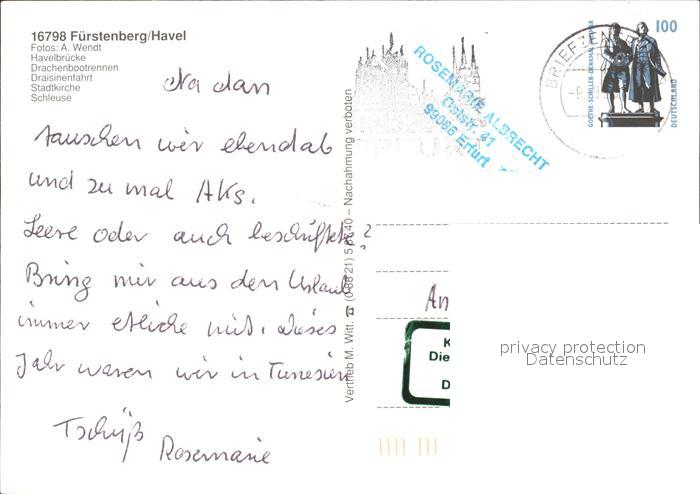 16798 Fürstenberg/Havel
Fotos: A. Wendt
Havelbrücke
Drachenbootrennen
Draisinenfahrt
Stadtkirche
Schleuse
Na dan
tauschen wir ebend ab
und zu mal AKs.
Leere oder auch beschriftete?
Bring mir aus den Urlaub
immer etliche mit. dieses
Jahr waren wir in Tunesien
Tschüß
Rosemarie
Vertrieb M. Witt. ☎ (0 88 21) 5 87 40 – Nachahmung verboten
ROSEMARIE ALBRECHT
41
99086 Erfurt
BRIEFZEN
100
GOETHE-SCHILLER-DENKMAL
DEUTSCHLAND
An
K
Die
D
privacy protection
Datenschutz